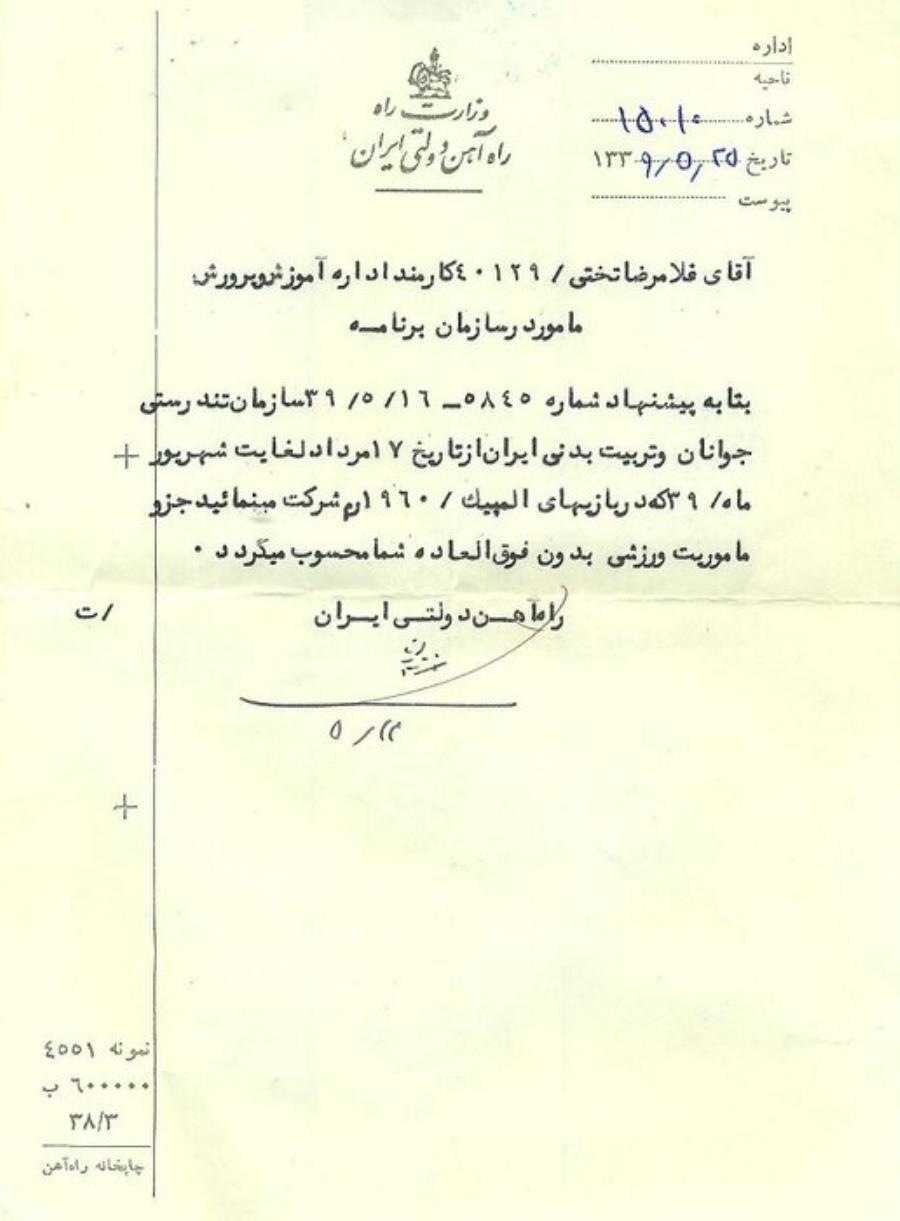 اداره
ناحیه
شماره ۱۵۰۱۰
تاریخ ۱۳۳۹/۵/۲۵
پیوست
وزارت راه
راه آهن دولتی ایران
آقای غلامرضا تختی / ٤٠١٢٩ کارمند اداره آموزش وپرورش
مامور در سازمان برنامه
بنا به پیشنهاد شماره ٥٨٤٥ – ١٦/ ٥/ ٣٩ سازمان تندرستی
جوانان وتربیت بدنی ایران از تاریخ ١٧ مرداد لغایت شهریور
ماه/ ٣٩ که در بازیهای المپیک / ١٩٦٠ رم شرکت مینمائید جزو
ماموریت ورزشی بدون فوق العاده شما محسوب میگردد ٠
راه آهن دولتی ایران
/ت
نمونه ٤٥٥١
٦٠٠٠٠٠ ب
٣٨/٣
چاپخانه راه‌آهن